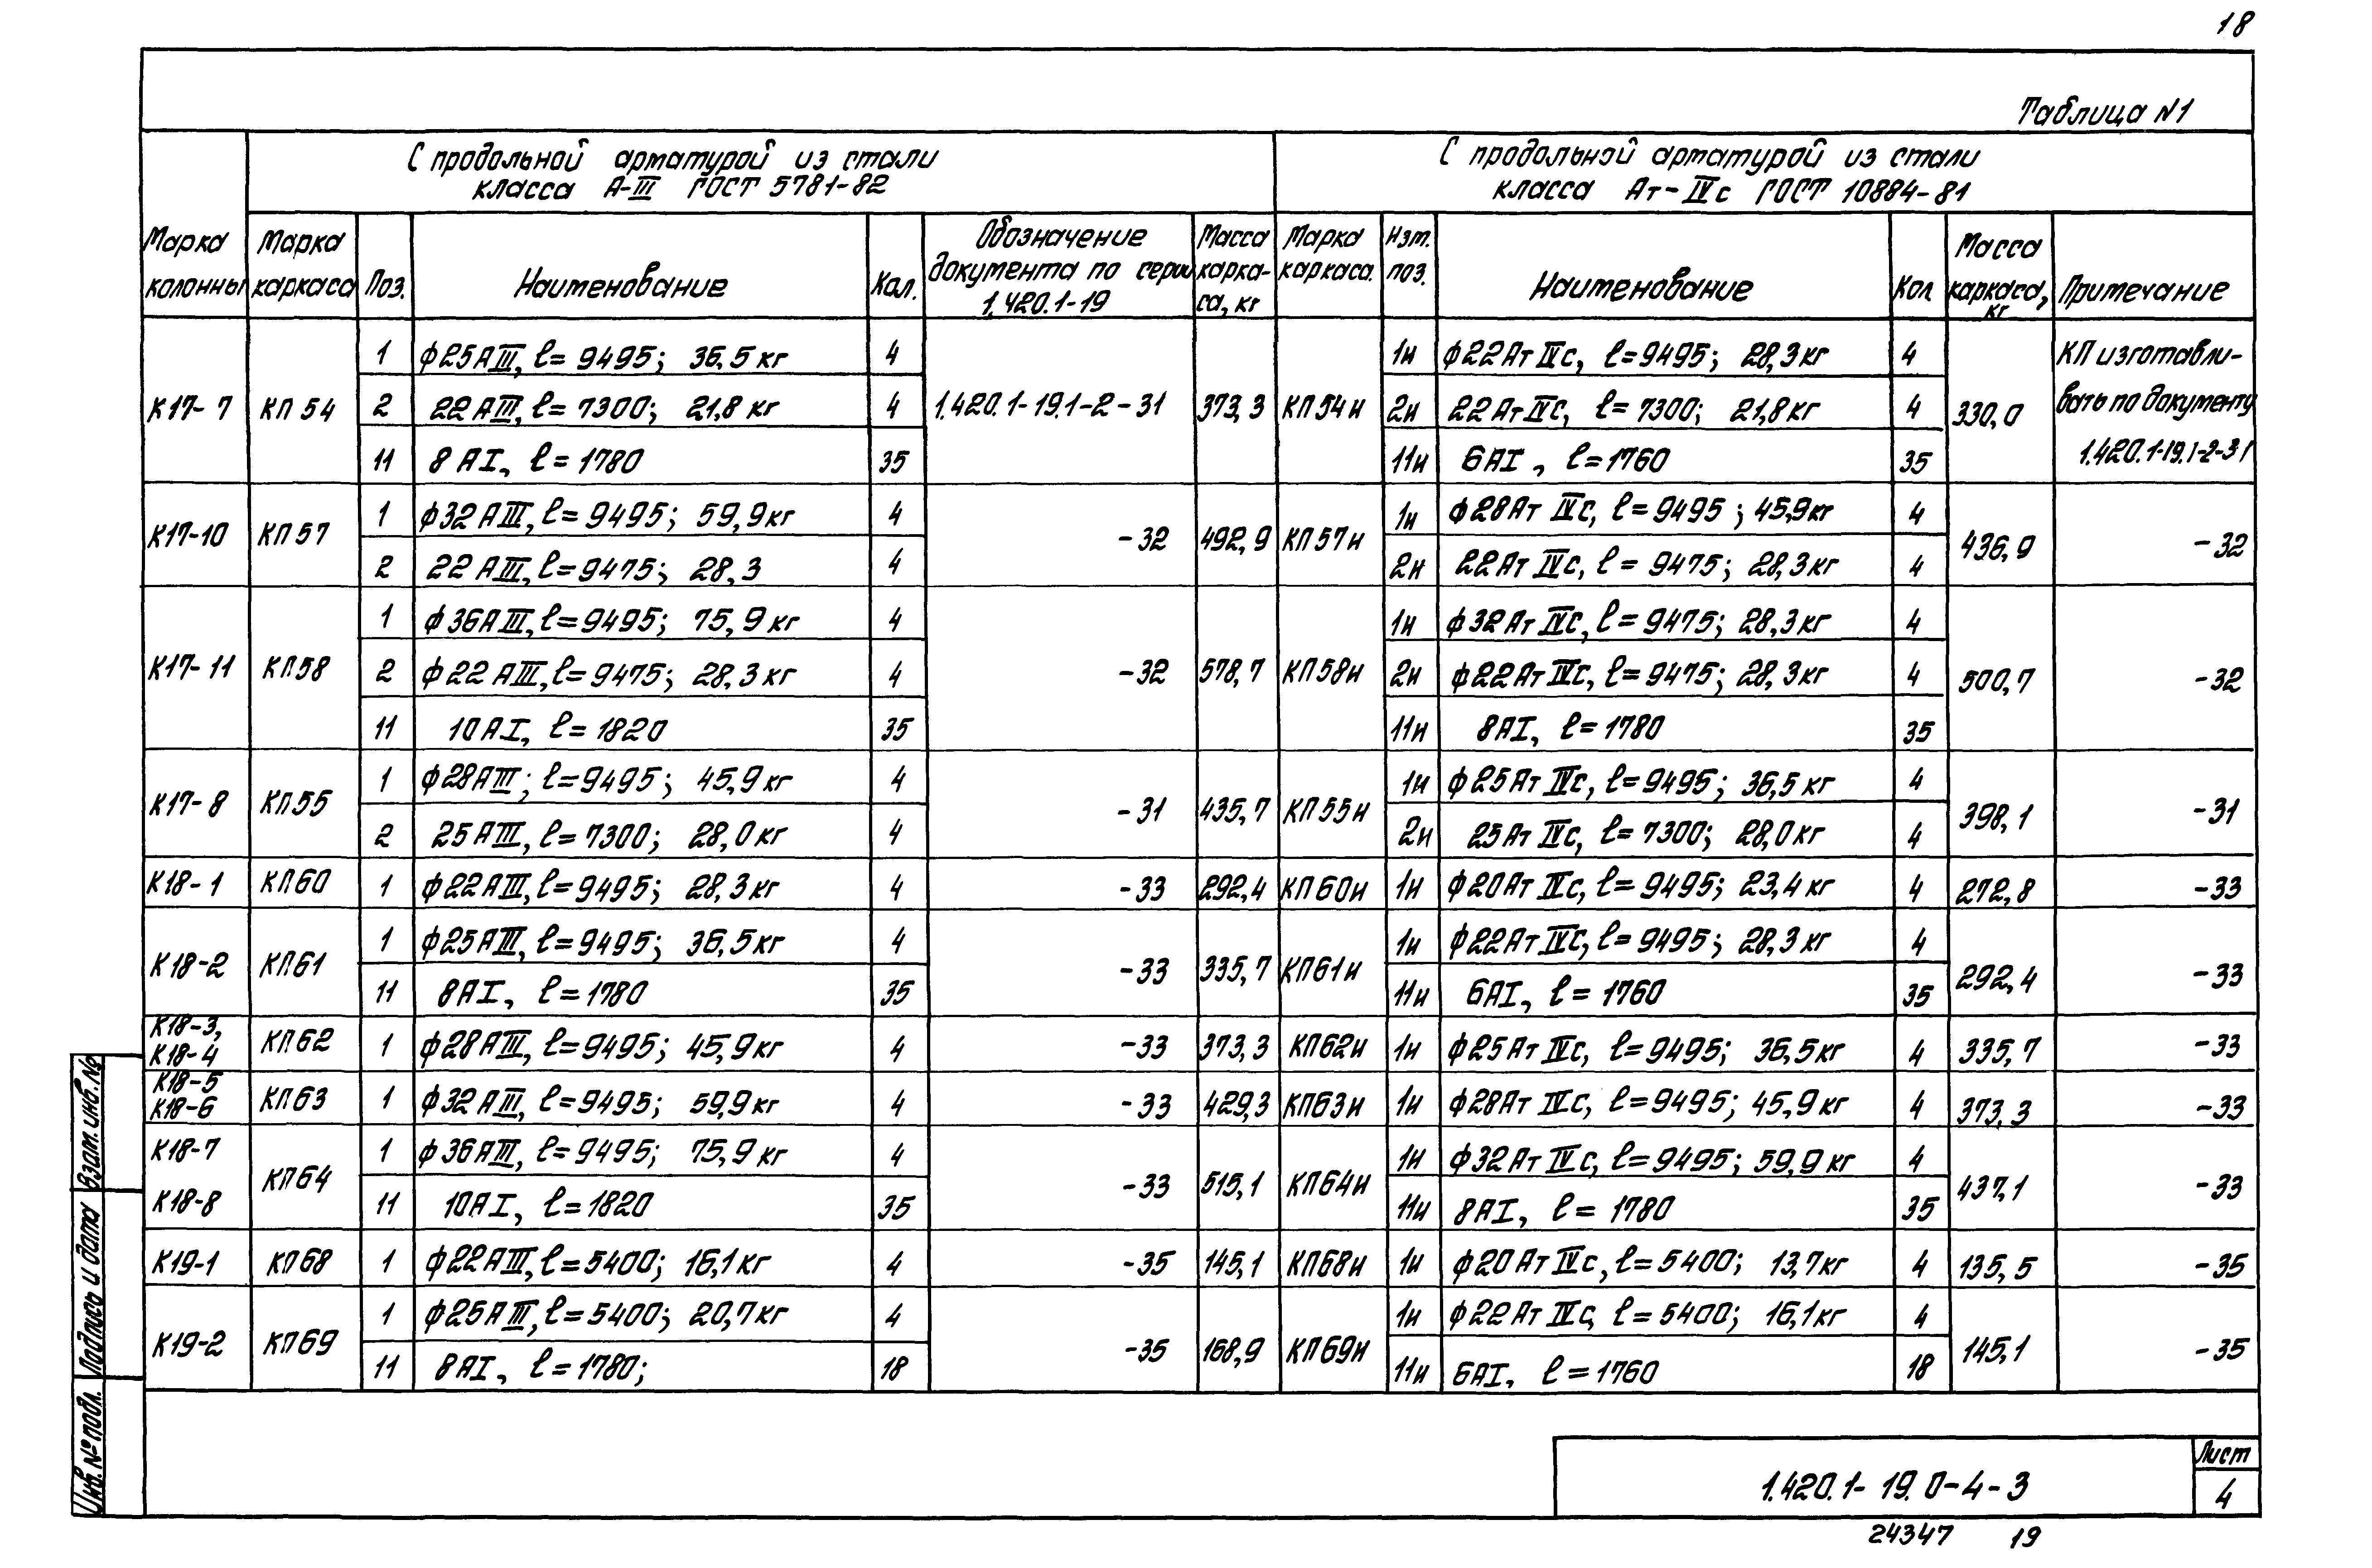 18
Таблица №1
С продольной арматурой из стали
класса А-III ГОСТ 5781-82
С продольной арматурой из стали
класса Ат-IVс ГОСТ 10884-81
Марка колонны
Марка каркаса
Поз.
Наименование
Кол.
Обозначение документа по серии 1.420.1-19
Масса карка-са, кг
Марка каркаса
Изм. поз.
Наименование
Кол
Масса каркаса, кг
Примечание
К17-7 КП54 1.420.1-19.1-2-31 373,3 КП54и 330,0 КП изготавли-
вать по документу
1.420.1-19.1-2-31
1 ф25АIII, ℓ=9495; 36,5кг 4 1и ф22АтIVс, ℓ=9495; 28,3кг 4
2 22АIII, ℓ=7300; 21,8кг 4 2и 22АтIVс, ℓ=7300; 21,8кг 4
11 8АI, ℓ=1780 35 11и 6АI, ℓ=1760 35
К17-10 КП57 -32 492,9 КП57и 436,9 -32
1 ф32АIII, ℓ=9495; 59,9кг 4 1и ф28АтIVс, ℓ=9495; 45,9кг 4
2 22АIII, ℓ=9475; 28,3 4 2и 22АтIVс, ℓ=9475; 28,3кг 4
К17-11 КП58 -32 578,7 КП58и 500,7 -32
1 ф36АIII, ℓ=9495; 75,9кг 4 1и ф32АтIVс, ℓ=9475; 28,3кг 4
2 ф22АIII, ℓ=9475; 28,3кг 4 2и ф22АтIVс, ℓ=9475; 28,3кг 4
11 10АI, ℓ=1820 35 11и 8АI, ℓ=1780 35
К17-8 КП55 -31 435,7 КП55и 398,1 -31
1 ф28АIII; ℓ=9495; 45,9кг 4 1и ф25АтIVс, ℓ=9495; 36,5кг 4
2 25АIII, ℓ=7300; 28,0кг 4 2и 25АтIVс, ℓ=7300; 28,0кг 4
К18-1 КП60 1 ф22АIII, ℓ=9495; 28,3кг 4 -33 292,4 КП60и 1и ф20АтIVс, ℓ=9495; 23,4кг 4 272,8 -33
К18-2 КП61 -33 335,7 КП61и 292,4 -33
1 ф25АIII, ℓ=9495; 36,5кг 4 1и ф22АтIVс, ℓ=9495; 28,3кг 4
11 8АI, ℓ=1780 35 11и 6АI, ℓ=1760 35
К18-3,
К18-4 КП62 1 ф28АIII, ℓ=9495; 45,9кг 4 -33 373,3 КП62и 1и ф25АтIVс, ℓ=9495; 36,5кг 4 335,7 -33
К18-5
К18-6 КП63 1 ф32АIII, ℓ=9495; 59,9кг 4 -33 429,3 КП63и 1и ф28АтIVс, ℓ=9495; 45,9кг 4 373,3 -33
К18-7
К18-8 КП64 -33 515,1 КП64и 437,1 -33
1 ф36АIII, ℓ=9495; 75,9кг 4 1и ф32АтIVс, ℓ=9495; 59,9кг 4
11 10АI, ℓ=1820 35 11и 8АI, ℓ=1780 35
К19-1 КП68 1 ф22АIII, ℓ=5400; 16,1кг 4 -35 145,1 КП68и 1и ф20АтIVс, ℓ=5400; 13,7кг 4 135,5 -35
К19-2 КП69 -35 168,9 КП69и 145,1 -35
1 ф25АIII, ℓ=5400; 20,7кг 4 1и ф22АтIVс, ℓ=5400; 16,1кг 4
11 8АI, ℓ=1780; 18 11и 6АI, ℓ=1760 18
Взам. инв. №
Подпись и дата
Инв. № подл.
1.420.1-19.0-4-3
Лист
4
24347 19